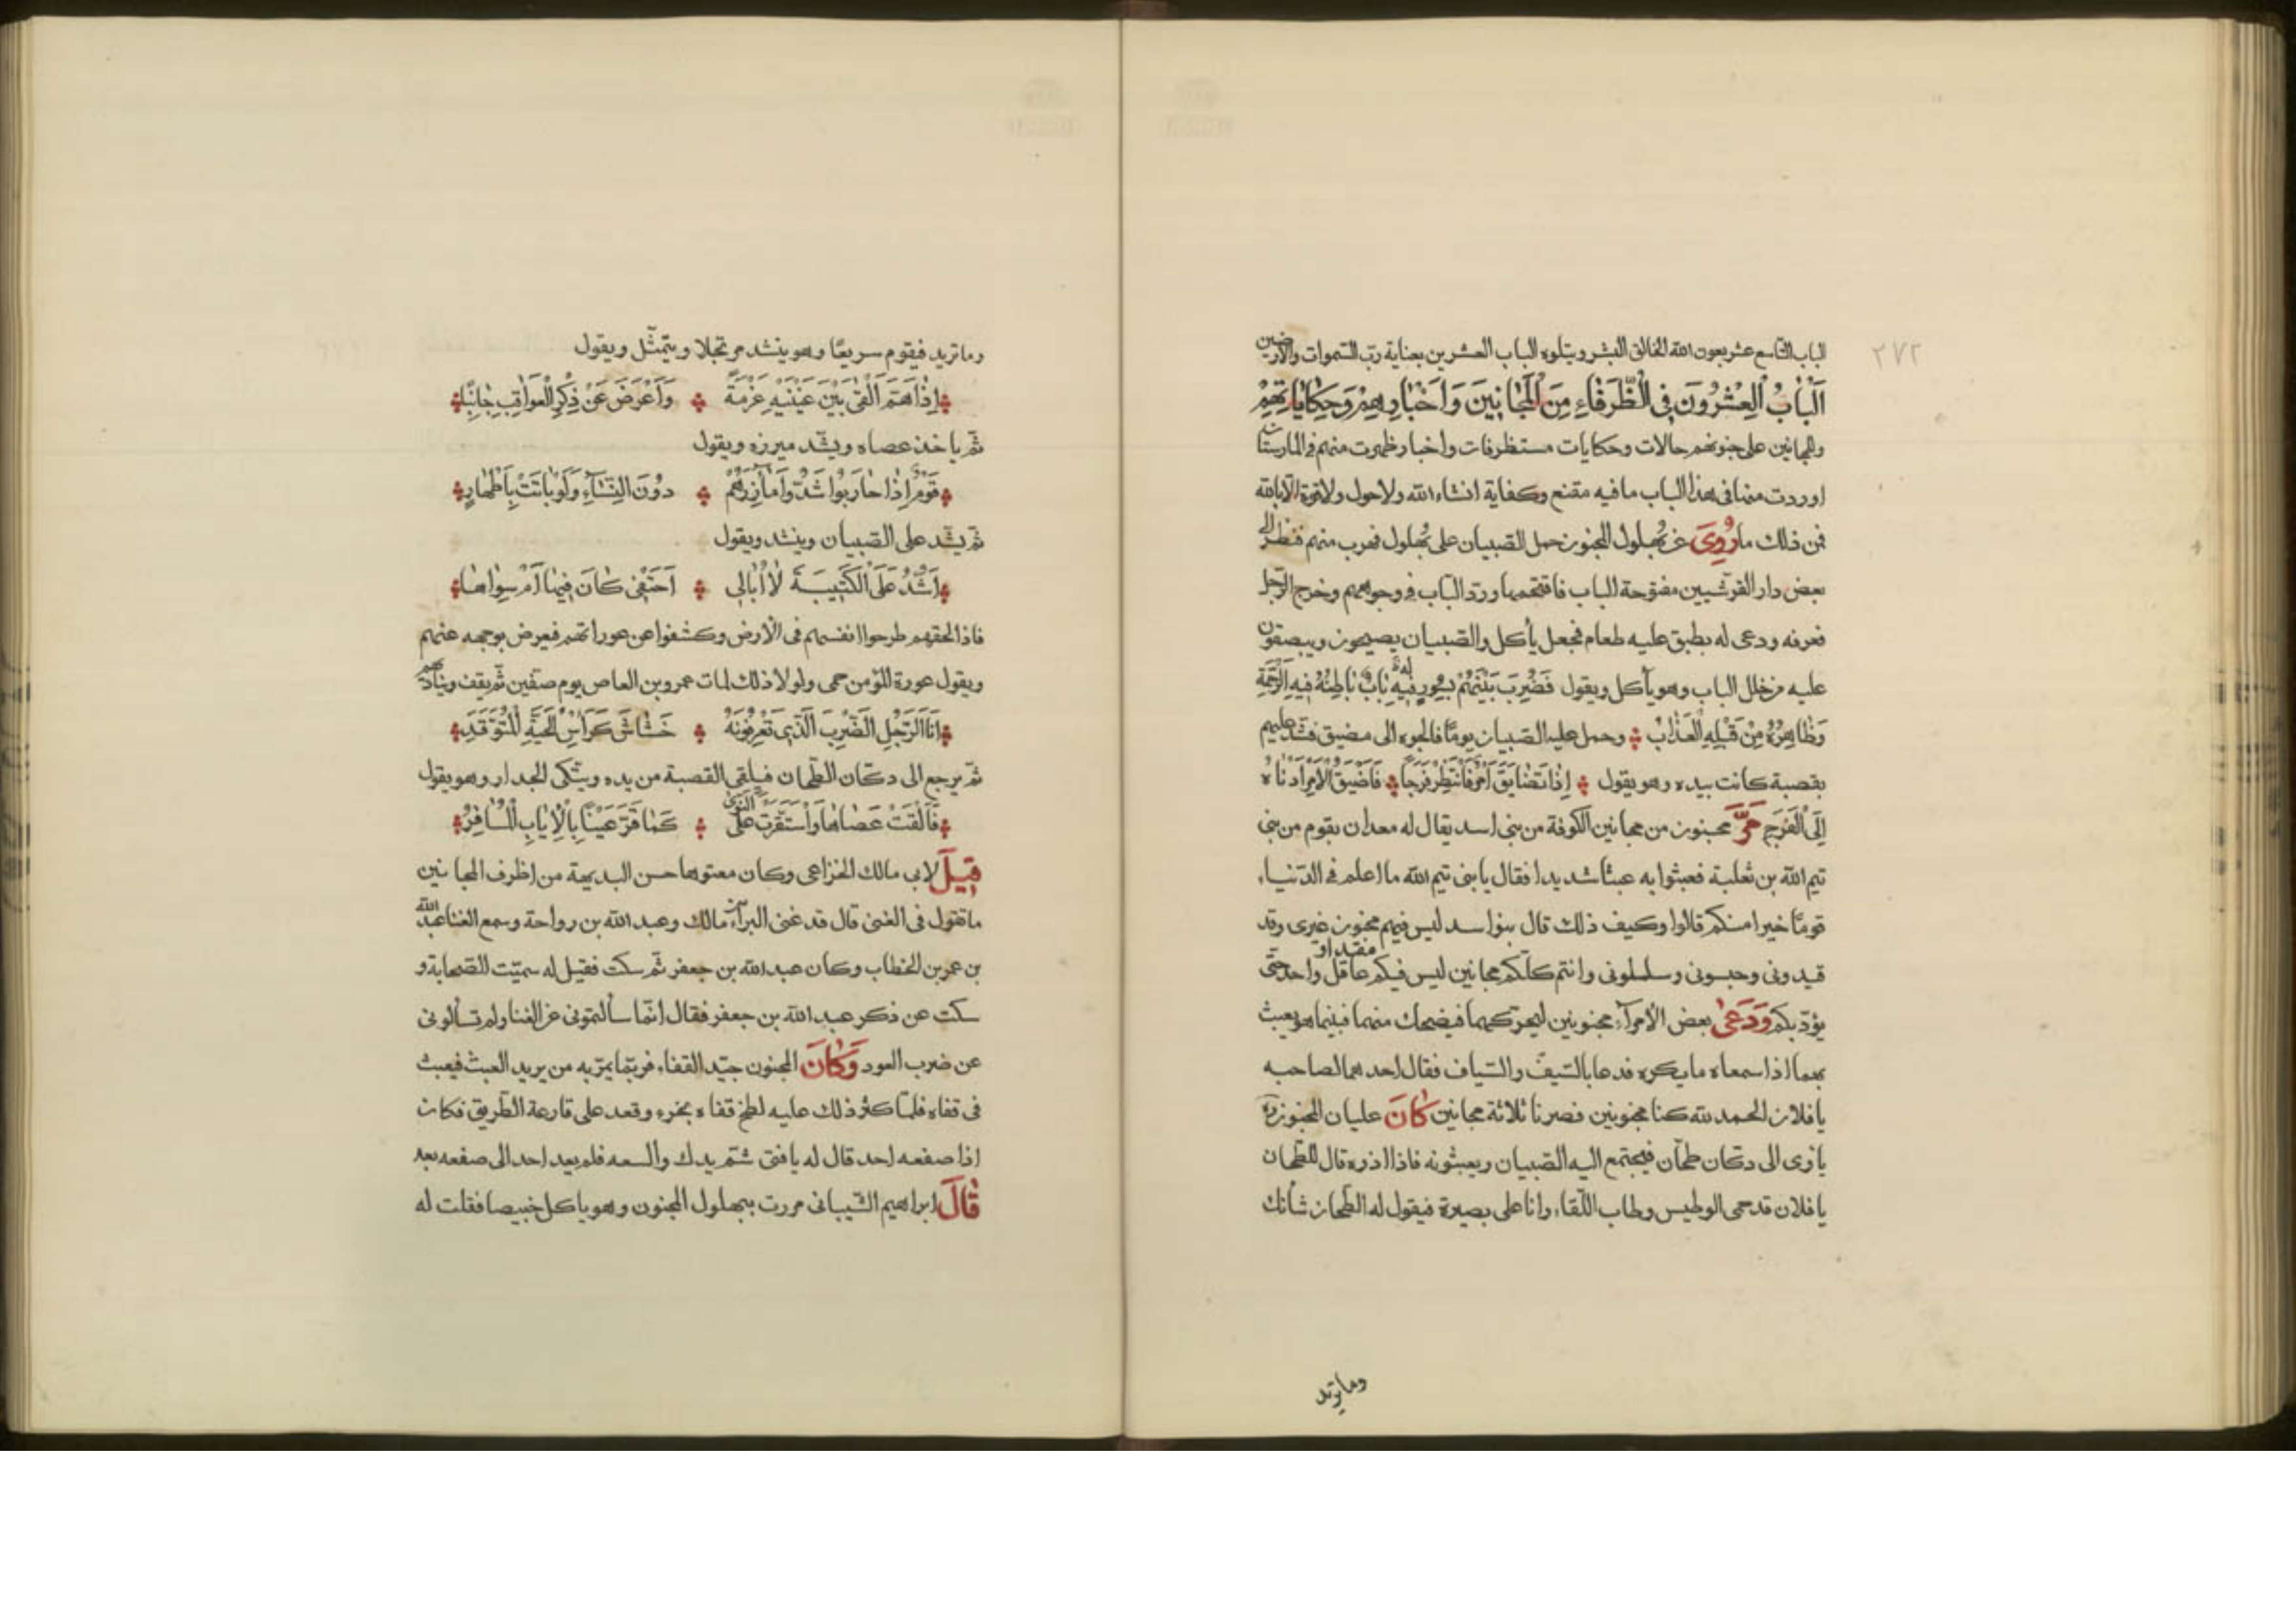 ٢٧٢
الباب التاسع عشر بعون الله الخالق البشر ويتلوه الباب العشرين بعناية ربّ السّموات والأرضين
اَلْبَابُ الْعِشْرُونَ فِي الظُّرَفَاءِ مِنَ الْمَجَانِينَ وَاَخْبَارِهِمْ وَحِكَايَاتِهِمْ
وللمجانين على جنونهم حالات وحكايات مستظرفات واخبار ظهرت منهم فى المارستان
اوردت منها فى هذا الباب ما فيه مقنع وكفاية انشاء الله ولا حول ولا قوة الّا بالله
فمن ذلك ما رُوِىَ عن بُهلول المجنون حمل الصّبيان على بُهلول فهرب منهم فنظر الى
بعض دار القرشيين مفتوحة الباب فاقتحمها وردّ الباب فى وجوههم وخرج الرّجل
فعرفه ودعى له بطبق عليه طعام فجعل يأكل والصّبيان يصيحون ويبصقون
عليه من خلل الباب وهو يأكل ويقول فَضُرِبَ بَيْنَهُمْ بِسُورٍ لَهُ بَابٌ بَاطِنُهُ فِيهِ الرَّحْمَةِ
وَظَاهِرُهُ مِنْ قِبَلِهِ الْعَذَابُ وحمل عليه الصّبيان يومًا فالجوه الى مضيق فشد عليهم
بقصبة كانت بيده وهو يقول اِذَا تَضَايَقَ اَمْرٌ فَانْتَظِرْ فَرَجًا فَاَضْيَقُ الْاَمْرِ اَدْنَاهُ
اِلَى الْفَرَجِ مَرَّ مجنون من مجانين الكوفة من بنى اسد يقال له معدان بقوم من بنى
تيم الله بن ثعلبة فعبثوا به عبثا شديدا فقال يا بنى تيم الله ما اعلم فى الدّنيا
قومًا خيرا منكم قالوا وكيف ذلك قال بنوا سد ليس فيهم مجنون غيرى وقد
قيدونى وحبسونى وسلسلونى وانتم كلّكم مجانين ليس فيكم عاقل واحد حتّى
يؤدّبكم وَدَعَىٰ بعض الأمرآء مجنونين ليحرّكهما فيضحك منهما فبينما هو يعبث
بهما اذا سمعاه ما يكره فدعا بالسّيف والسّياف فقال احدهما لصاحبه
يا فلان الحمد لله كنا مجنونين فصرنا ثلاثة مجانين كَانَ عليان المجنون
يأوى الى دكان طحّان فيجتمع اليه الصّبيان ويعبثونه فاذا اذوه قال للطحان
يا فلان قد حمى الوطيس وطاب اللّقاء وانا على بصيرة فيقول له الطّحان شأنك
وما تريد
وما تريد فيقوم سريعًا وهو ينشد مرتجلا ويتمثّل ويقول
اِذَا هَمَّ اَلْقَى بَيْنَ عَيْنَيْهِ عَزْمَهُ وَاَعْرَضَ عَنْ ذِكْرِ الْعَوَاقِبِ جَانِبًا
ثمّ ياخذ عصاه ويشّد ميزره ويقول
قَوْمٌ اِذَا حَارَبُوا شَدُّوا مَآزِرَهُمْ دُوْنَ النِّسَآءِ وَلَوْ بَاتَتْ بِاَطْهَارٍ
ثمّ يشّد على الصّبيان وينشد ويقول
اَشُدُّ عَلَى الْكَتِيبَةِ لَا اُبَالِى اَحَتْفِى كَانَ فِيهَا اَمْ سِوَاهَا
فاذا لحقهم طرحوا انفسهم فى الأرض وكشفوا عن عوراتهم فيعرض بوجهه عنهم
ويقول عورة المؤمن حمى ولولا ذلك لمات عمرو بن العاص يوم صفّين ثمّ يقف وينادهم
اَنَا الرَّجُلِ الضَّرِبَ الَّذِى تَعْرِفُونَهُ خَشَاشٌ كَرَأْسِ الْحَيَّةِ الْمُتَوَقِّدِ
ثمّ يرجع الى دكّان الطّحان فيلقى القصبة من يده ويتّكى الجدار وهو يقول
فَاَلْقَتْ عَصَاهَا وَاسْتَقَرَّتْ عَلَى النَّوَى كَمَا قَرَّ عَيْنًا بِالْاِيَابِ الْمُسَافِرُ
قِيلَ لابى مالك الخزاعى وكان معتوها حسن البديهة من اظرف المجانين
ما تقول فى الغنى قال قد غنى البرآء بن مالك وعبد الله بن رواحة وسمع الغنا عبد الله
بن عمر بن الخطاب وكان عبد الله بن جعفر ثمّ سكت فقيل له سمّيت الصّحابة و
سكت عن ذكر عبد الله بن جعفر فقال انّما سألتمونى عن الغنا ولم تسألونى
عن ضرب العود وَكَانَ المجنون جيّد القفاء فربّما يمرّ به من يريد العبث فيعبث
فى قفاه فلمّا كثر ذلك عليه لطخ قفاه بخرء وقعد على قارعة الطّريق فكان
اذا صفعه احد قال له يا فتى شمّ يدك والسعه فلم يعد احد الى صفعه بعد
قَالَ ابراهيم الشّيبانى مررت ببهلول المجنون وهو ياكل خبيصا فقلت له